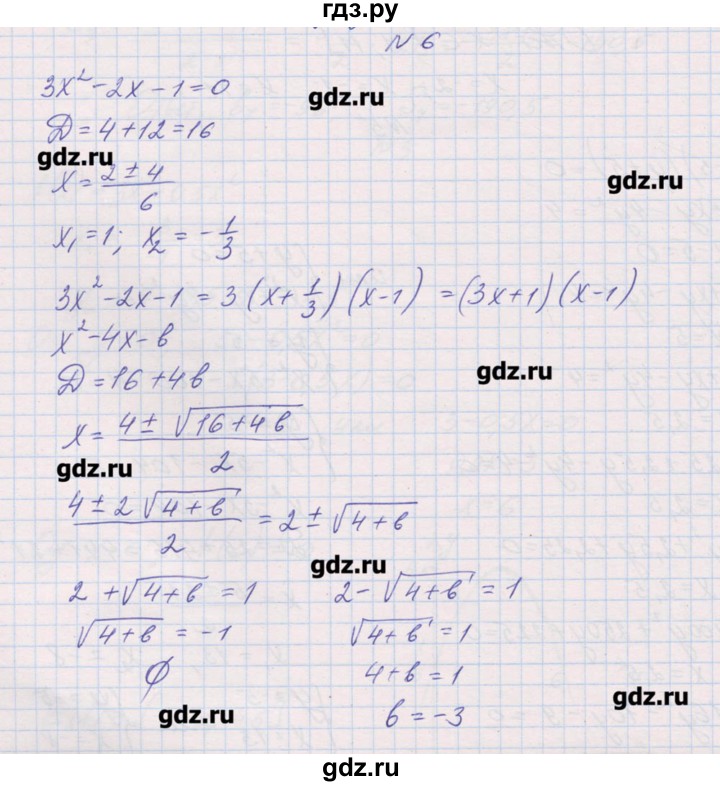 гдз.ру
N 6
3x² - 2x - 1 = 0
gdz.ru
Д = 4 + 12 = 16
gdz.ru
x = (2 ± 4)/6
gdz.ru
x₁ = 1; x₂ = -1/3
3x² - 2x - 1 = 3(x + 1/3)(x - 1) = (3x + 1)(x - 1)
x² - 4x - b
Д = 16 + 4b
gdz.ru
x = (4 ± √(16 + 4b))/2
gdz.ru
(4 ± 2√(4 + b))/2 = 2 ± √(4 + b)
gdz.ru
2 + √(4 + b) = 1 2 - √(4 + b) = 1
√(4 + b) = -1 √(4 + b) = 1
∅ 4 + b = 1
gdz.ru
gdz.ru
b = -3
gdz.ru